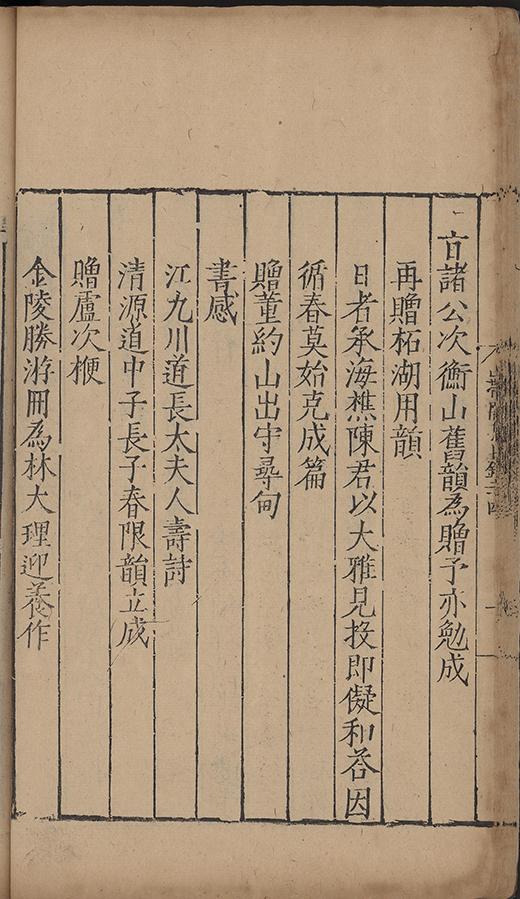 諸公次衡山舊韻為贈予亦勉成
再贈柘湖用韻
日者承海樵陳君以大雅見投即儗和荅因
循春莫始克成篇
贈董約山出守尋甸
書感
江九川道長太夫人壽詩
清源道中子長子春限韻立成
贈盧次楩
金陵勝游冊為林大理迎養作